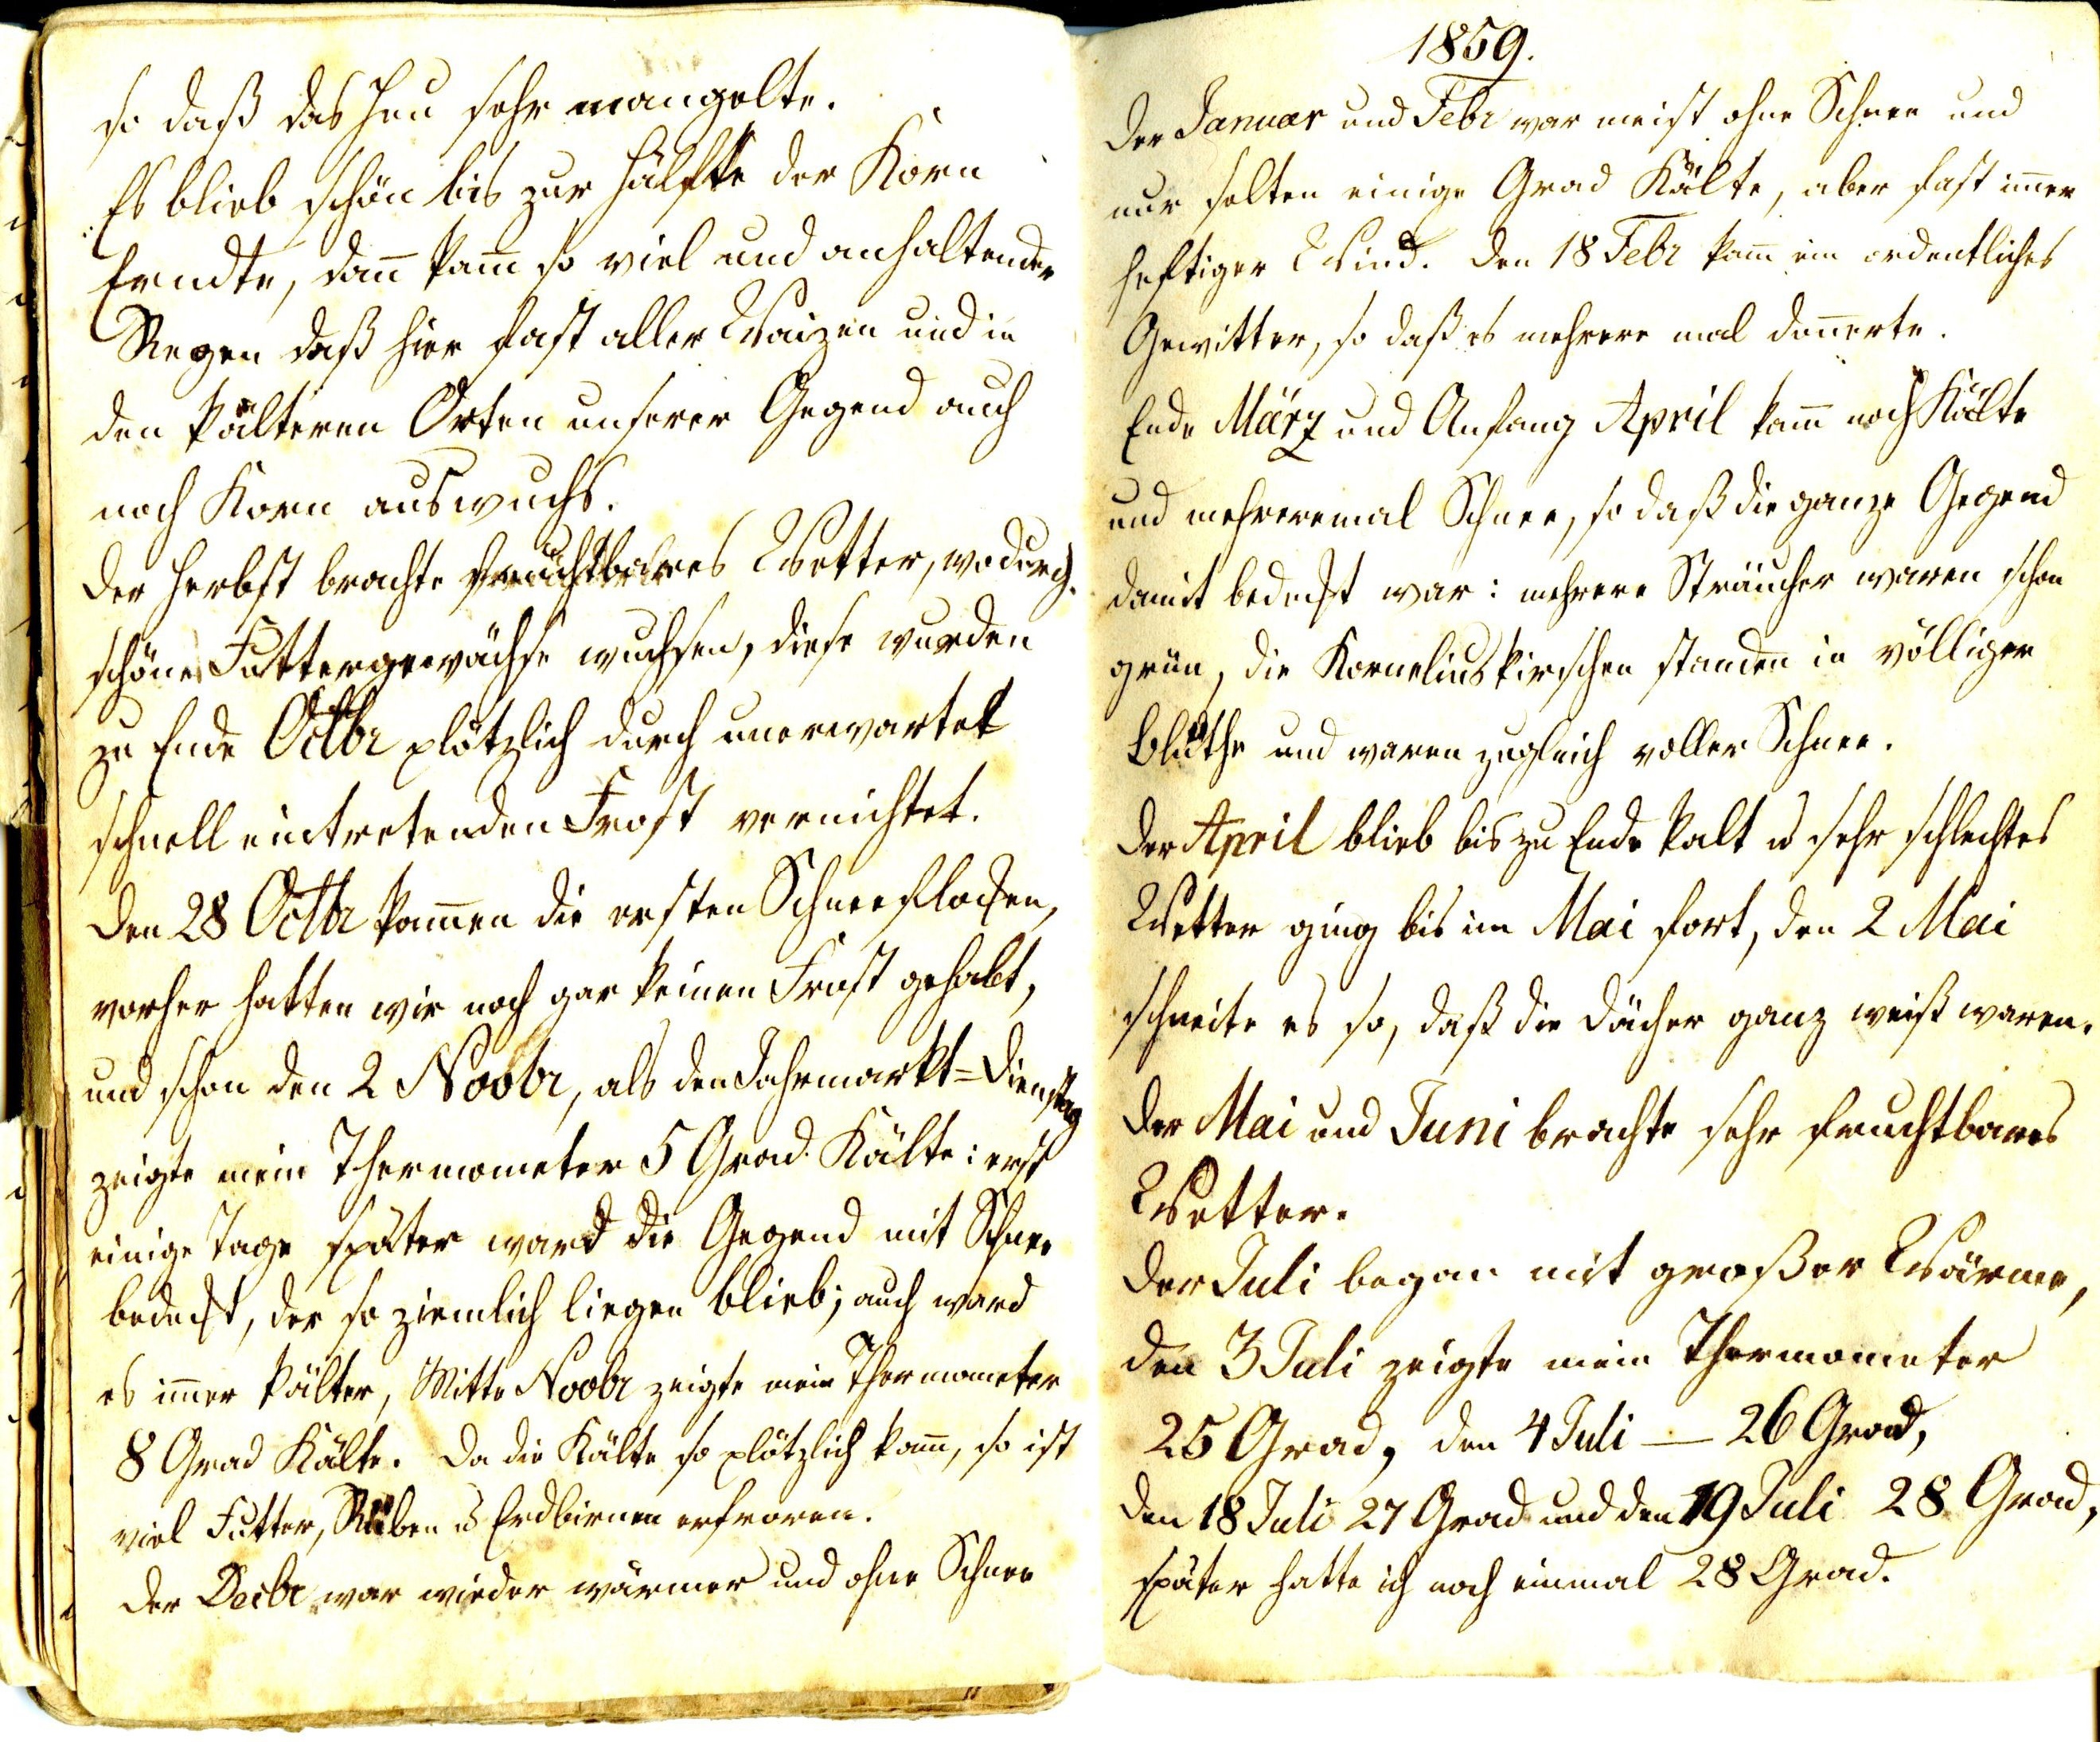 so daß das Heu sehr mangelte.
Es blieb schön bis zur Hälfte der Korn
Erndte, dan̄ kam̄ so viel und anhaltender
Regen daß hier fast aller Waizen und in
den kälteren Orten unserer Gegend auch
noch Korn auswuchs.
Der Herbst brachte fruchtbares Wetter, wodurch
schöne Futtergewächse wuchsen, diese wurden
zu Ende Octbr plötzlich durch unerwartet
schnell eintretenden Frost vernichtet.
Den 28 Octbr kam̄en die ersten Schneeflocken,
vorher hatten wir noch gar keinen Frost gehabt,
und schon den 2 Novbr, als den Jahrmarkt=Dienstag
zeigte mein Thermometer 5 Grad Kälte: erst
einige Tage später ward die Gegend mit Schnee
bedeckt, der so ziemlich liegen blieb; auch ward
es im̄er kälter, Mitte Novbr zeigte mein Thermometer
8 Grad Kälte. Da die Kälte so plötzlich kam̄, so ist
viel Futter, Rüben u Erdbirnen erfroren.
Der Decbr war wieder wärmer und ohne Schnee
1859.
Der Januar und Febr war meist ohne Schnee und
nur selten einige Grad Kälte, aber fast im̄er
heftiger Wind. Den 18 Febr kam̄ ein ordentliches
Gewitter, so daß es mehrere mal don̄erte.
Ende März und Anfang April kam̄ noch Kälte
und mehreremal Schnee, so daß die ganze Gegend
damit bedeckt war: mehrere Sträucher waren schon
grün, die Korneliuskirschen standen in völliger
Blüthe und waren zugleich voller Schnee.
Der April blieb bis zu Ende kalt u sehr schlechtes
Wetter ging bis im Mai fort, den 2 Mai
schneite es so, daß die Dächer ganz weiß waren.
Der Mai und Juni brachte sehr fruchtbares
Wetter.
Der Juli began mit großer Wärme,
den 3 Juli zeigte mein Thermometer
25 Grad, den 4 Juli — 26 Grad,
den 18 Juli 27 Grad und den 19 Juli 28 Grad,
später hatte ich noch einmal 28 Grad.